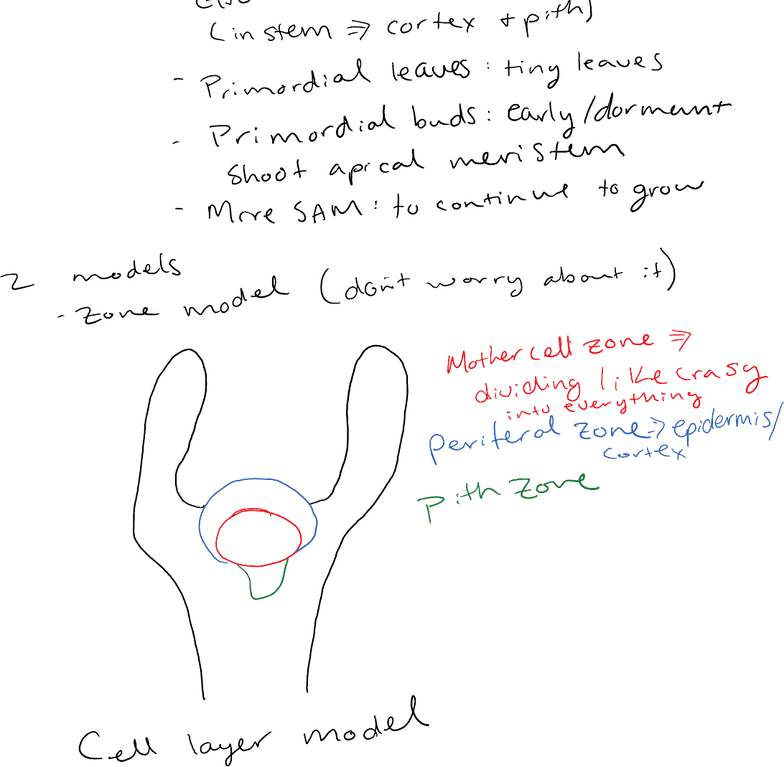 (in stem ⇒ cortex + pith)
- Primordial leaves : tiny leaves
- Primordial buds : early/dormant
shoot apical meristem
- More SAM : to continue to grow
2 models
- Zone model (don't worry about it)
Mother cell zone ⇒
dividing like crasy
into everything
Periferal zone => epidermis/
cortex
Pith Zone
Cell layer model